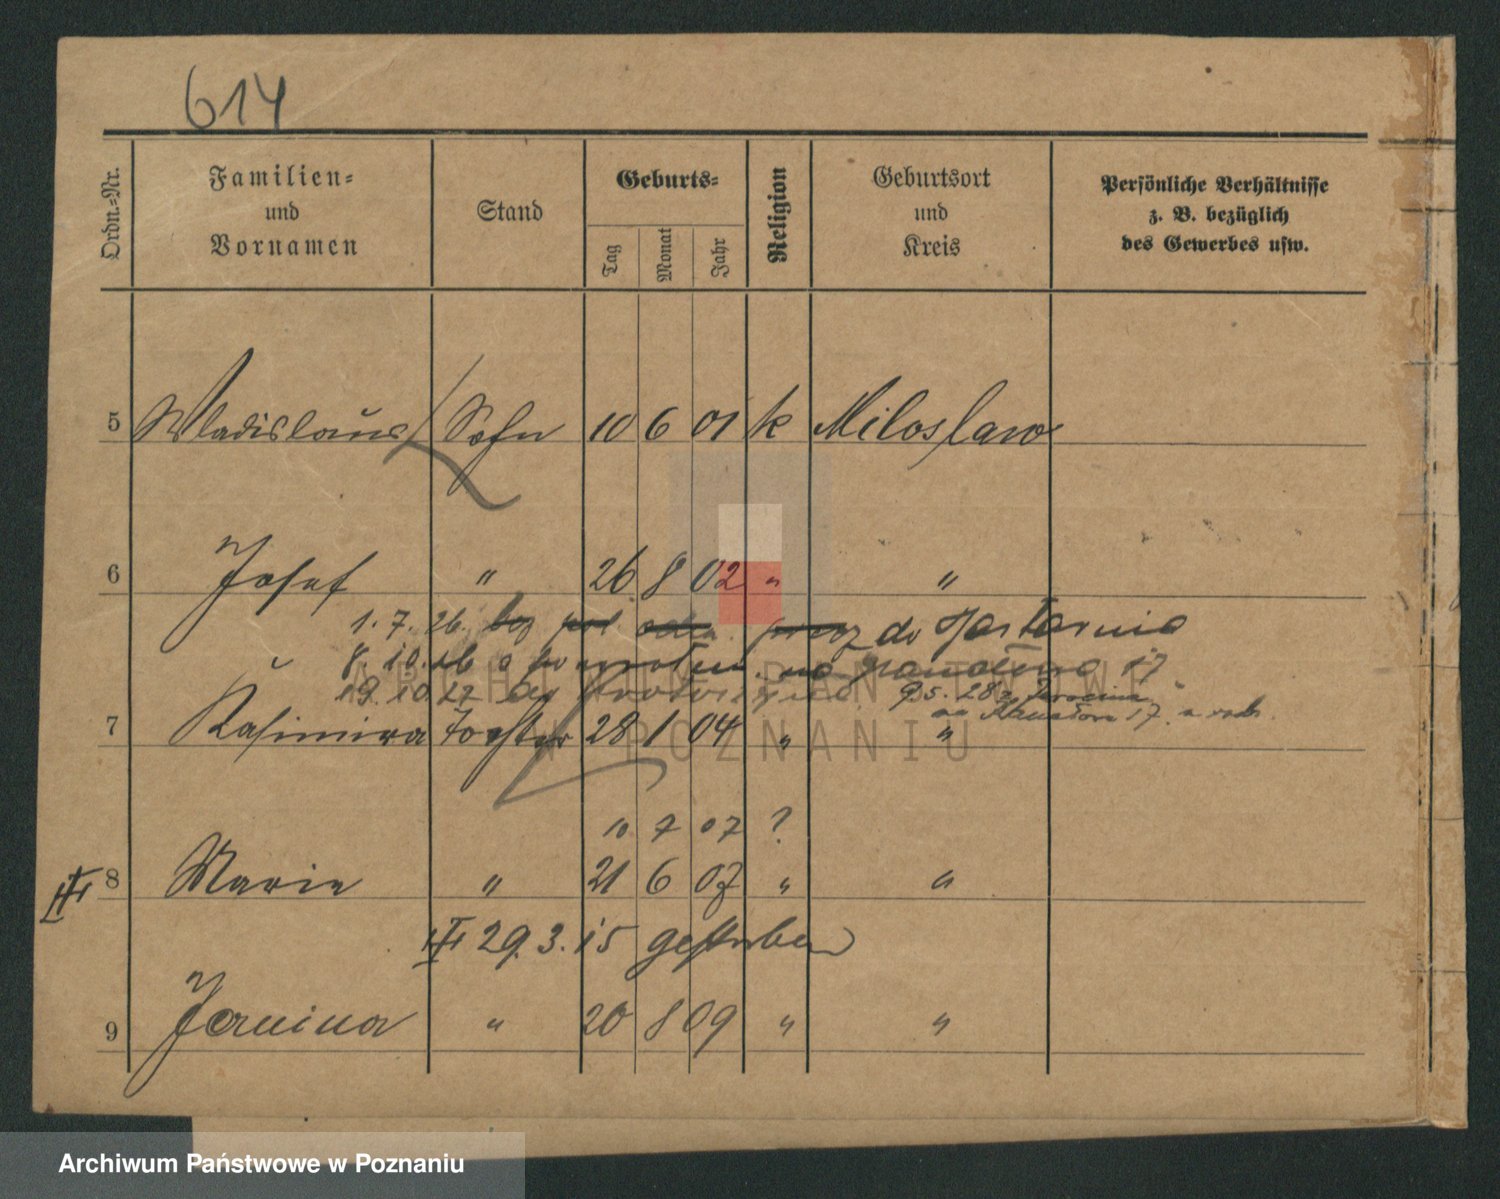 614
Ordn.=Nr.
Familien=
und
Vornamen
Stand
Geburts=
Tag
Monat
Jahr
Religion
Geburtsort
und
Kreis
Persönliche Verhältnisse
z. B. bezüglich
des Gewerbes usw.
5 Wladislaus Sohn 10 6 01 k Miloslaw
6 Josef " 26 8 02 " "
1. 7. 26. do Jastarnia
8. 10. 26 17
19. 10 27 9.5. 28 17
7 Kasimira Tochter 28 1 04 " "
10 7 07 ?
8 Marie " 21 6 07 " "
29. 3. 15 gestorben
9 Janina " 20 8 09 " "
ARCHIWUM PAŃSTWOWE
W POZNANIU
Archiwum Państwowe w Poznaniu